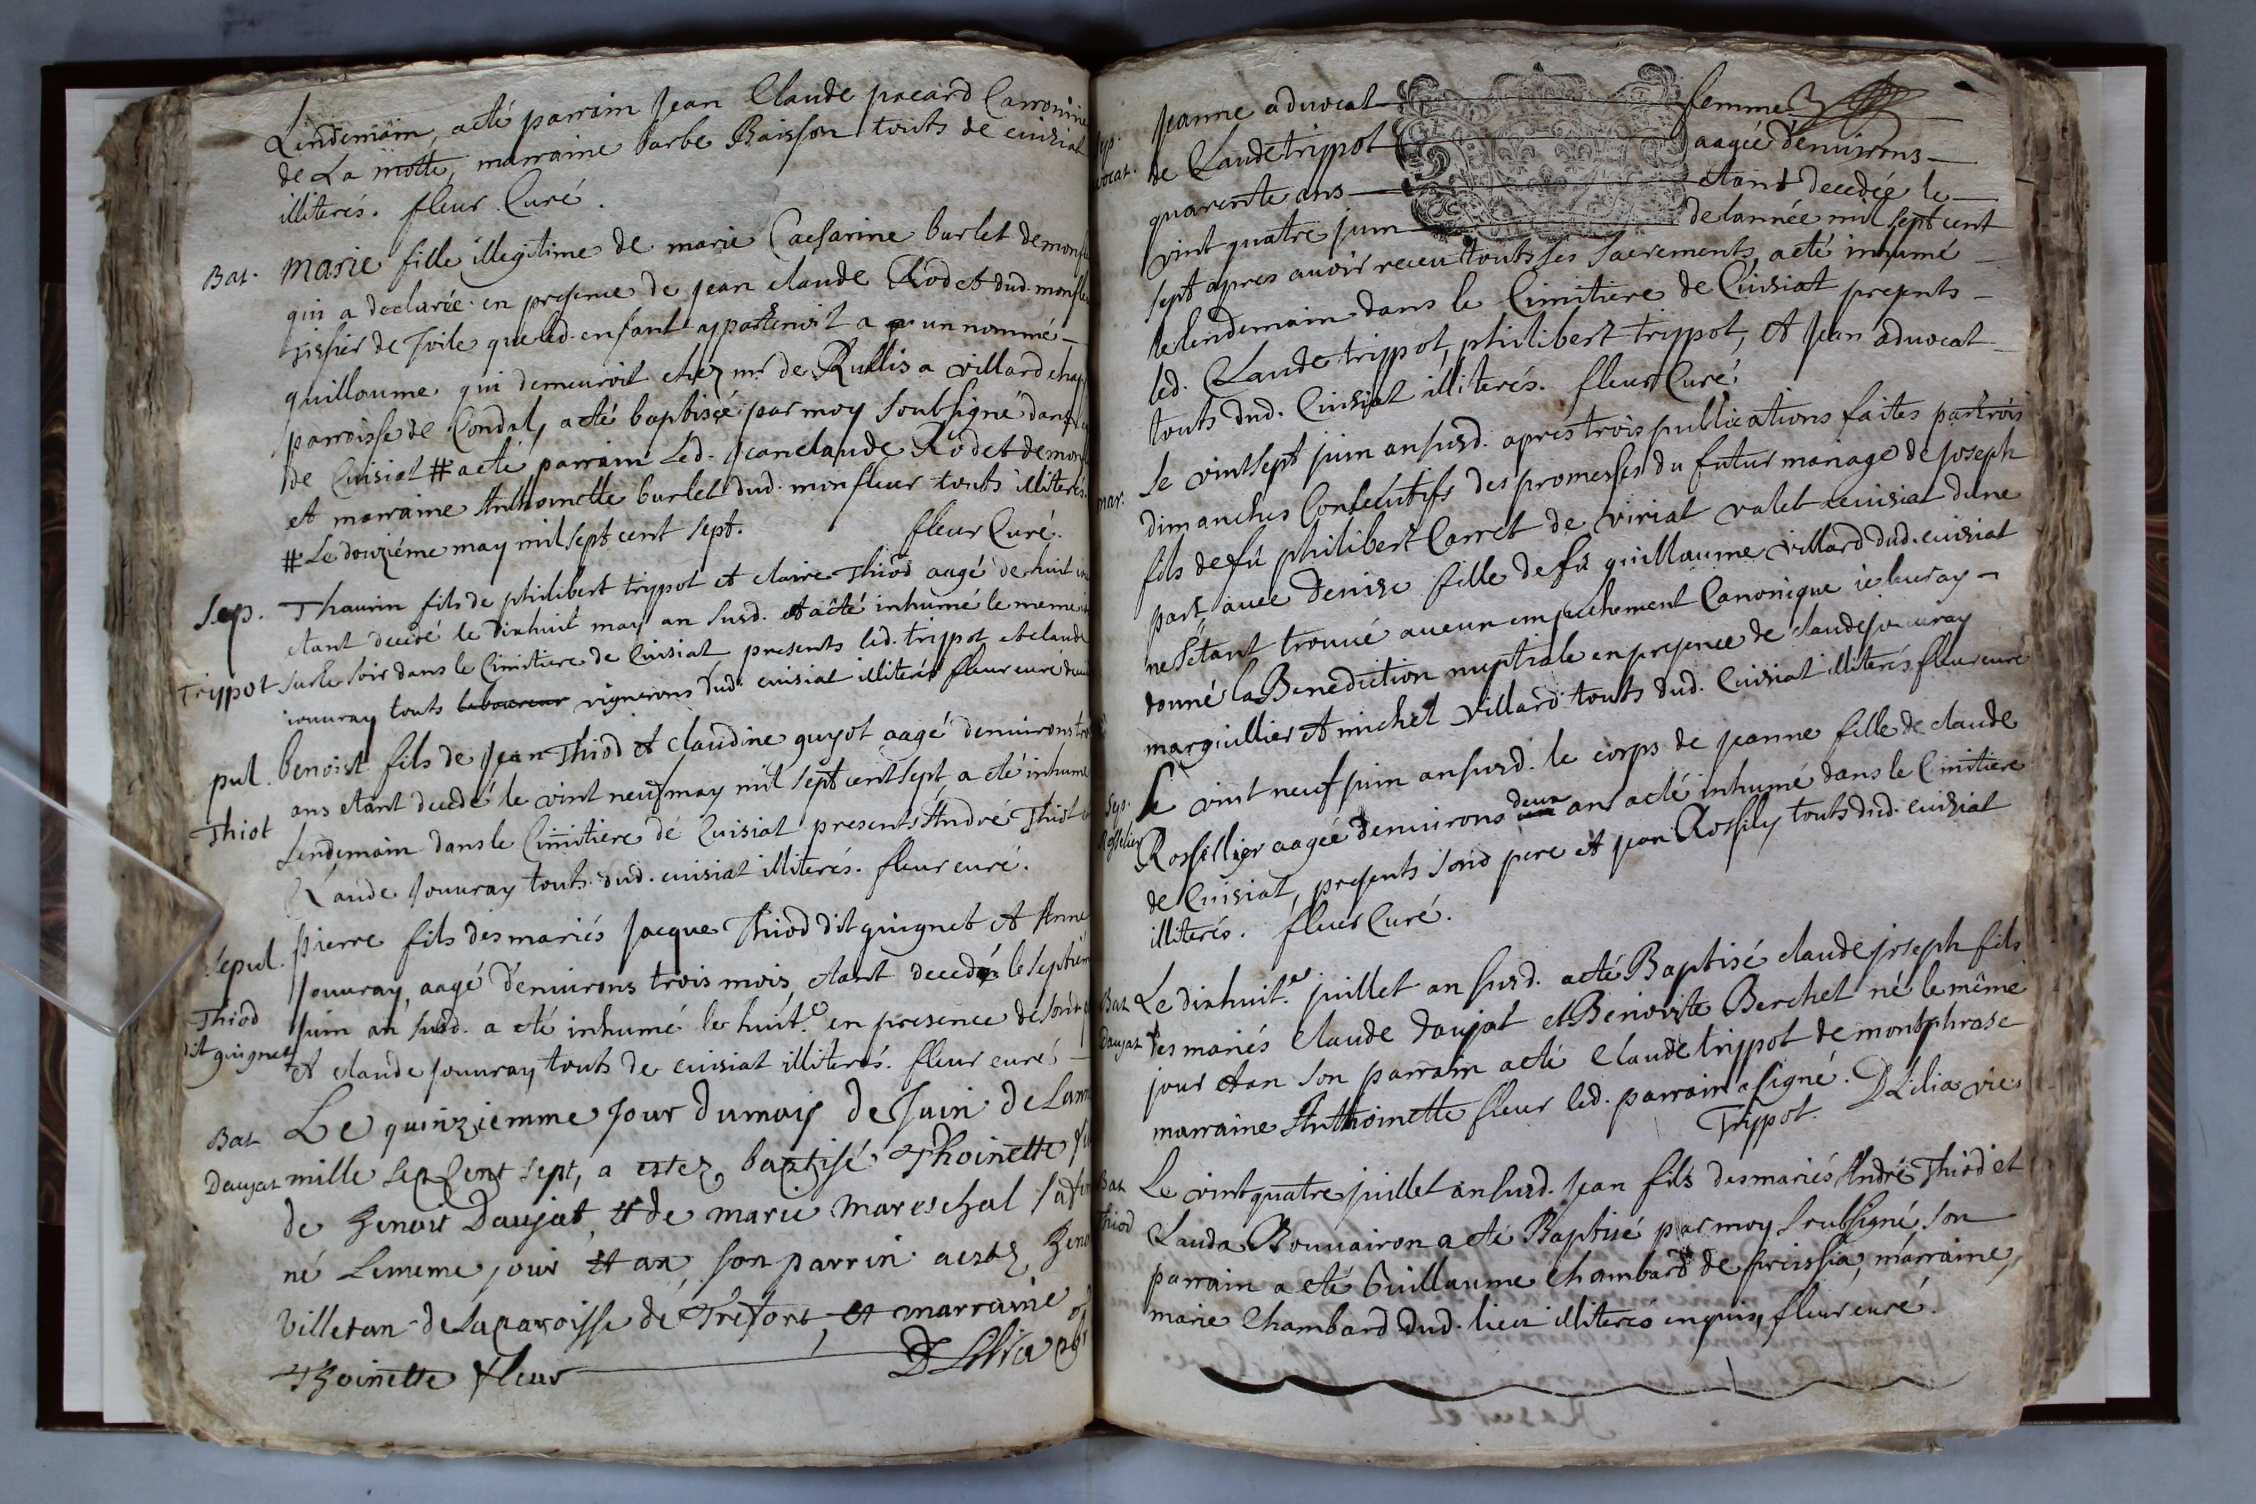 Lendemain, acté parrain Jean Claude pacard
de La motte, marraine barbe Baisson touts de cuisiat
illiterés. fleur Curé.
Bat. Marie fille illegitime de marie Caesarine burlet de
qui a declarée en presence de Jean claude Rodet dud.
que led. enfant appartenoit a un nommé
guillaume qui demeuroit chez mr de Rullis a villard
parroisse de Condal, acté baptisée par moy soubsigné
de Cuisiat # acté parrain led. Jean claude Rodet de
et marraine Anthoinette burlet dud. monfleur touts illiterés
# Le douziéme may mil sept cent sept. fleur Curé.
Sep. Thaurin fils de philibert trippot et claire Thiod aagé de huit
etant decedé le dixhuit may an susd. et acté inhumé le meme
Trypot sur le soir dans le Cimitiere de Cuisiat presents led. trippot et claude
jouuray touts laboureur vignerons dud. cuisiat illiterés fleur curé
pul. benoist fils de Jean Thiod et claudine guyot aagé denuirons
Thiot ans etant decedé le vint neuf may mil sept cent sept, a eté inhumé
Lendemain dans le Cimitiere de Cuisiat presents André Thiot
Claude Jouuray touts dud. cuisiat illiterés. fleur curé.
Sepul. pierre fils des mariés Jacque Thiod dit guignet et Anne
Jouuray, aagé denuirons trois mois, etant decedé le septiéme
Thiod dit guignet juin an susd. a eté inhumé le huit.e en presence de
et claude jouuray touts de cuisiat illiterés. fleur curé
Bat Le quinziemme Jour du mois de Juin de
Daujat mille sept Cent sept, a estez baptisé Thoinette
de Benoit Daujat, et de marie mareschal
né Lememe jour et an son parrin aestez
Villetan de Laparoisse de Trefort, et marraine
Thoinette fleur D Lilia
Jeanne aduocat femme
de Claude trippot aagée denuirons
quarente ans etant decedée le
vint quatre juin de lannée mil sept cent
sept apres auoir receu touts ses sacrements, acté inhumé
le lendemain dans le Cimitiere de Cuisiat presents
led. Claude trippot, philibert trippot, et Jean aduocat
touts dud. Cuisiat illiterés. fleur Curé.
mar. Le vint sept juin an susd. apres trois publications faites par trois
dimanches Consecutifs des promesses du futur mariage de joseph
fils de fû philibert Carret de viriat valet a cuisiat dune
part, auec denise fille de fû guillaume villard dud. cuisiat
ne sétant trouué aucun empechement Canonique ie leur ay
donné la Benediction nuptiale en presence de claude jouuray
margiullier et michel villard touts dud. Cuisiat illiterés fleur curé
Sep. Le vint neuf juin an susd. le corps de jeanne fille de claude
Rossillier aagée denuirons deux ans acté inhumé dans le Cimitiere
de Cuisiat, presents sond pere et jean Rossily touts dud. cuisiat
illiterés. fleur Curé.
Bat Le dixhuit.e juillet an susd. acté Baptisé claude joseph fils
Daujat des mariés Claude daujat et Benoiste Berchet né le même
jour et an son parrain acté Claude trippot de montphrase
marraine Anthoinette fleur led. parrain a signé. D Lilia vic.
Trypot.
Bat Le vint quatre juillet an susd. jean fils des mariés André Thiod et
Thiod Clauda Bouuairon a eté Baptisé par moy soubsigné son
parrain a eté Guillaume Chambard de preissia, marraine
marie Chambard dud. lieu illiterés enquis, fleur curé.